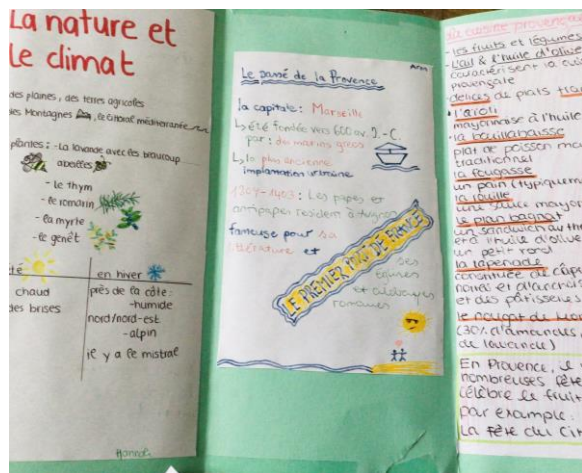 La nature et
le climat
des plaines, des terres agricoles
des Montagnes, le littoral méditerranée
plantes: - La lavande avec les beaucoup
abeilles
- le thym
- le romarin
- la myrte
- le genêt
en hiver
chaud
des brises
près de la côte:
-humide
nord/nord-est
-alpin
il y a le mistral
Hannah
Le passé de la Provence
la capitale: Marseille
été fondée vers 600 av. J.-C.
par: des marins grecs
la plus ancienne
implantation urbaine
1309-1403: Les papes et
antipapes resident à Avignon
fameuse pour sa
littérature et
ses
églises
et abbayes
romanes
LE PREMIER PORT DE FRANCE
La cuisine provença
- les fruits et légumes
- L'ail & l'huile d'olive
caractérisent la cui
provençale
délices de plats tra
l'aïoli
mayonnaise à l'huile
la bouillabaisse
plat de poisson
traditionnel
la fougasse
un pain (typiquem
la rouille
une sauce mayon
le pan bagnat
un sandwich au th
et à l'huile d'olive
un petit rond
la tapenade
constituée de câp
noires et d'anchois
et des pâtisseries
le nougat de
(30% d'amandes,
de lavande)
En Provence, il
nombreuses fête
célèbre le fruit
par example:
La fête du Cit